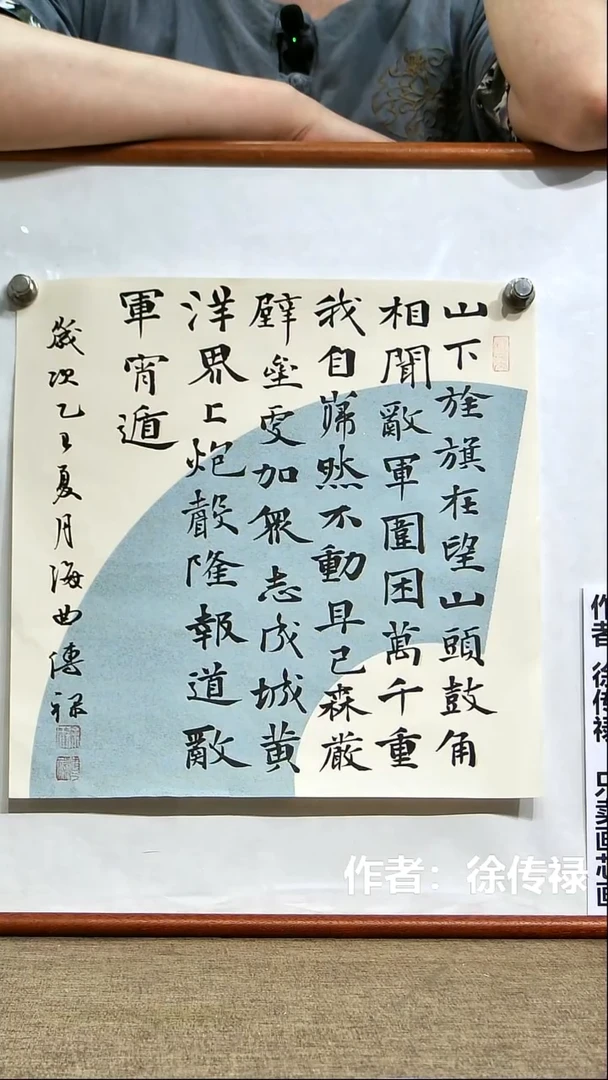 山下旌旗在望山頭鼓角
相聞敵軍圍困萬千重
我自巋然不動早已森嚴
壁壘更加衆志成城黄
洋界上炮聲隆報道敵
軍宵遁
歲次乙巳夏月海曲傳禄
作者 徐传禄 只卖画芯画
作者：徐传禄